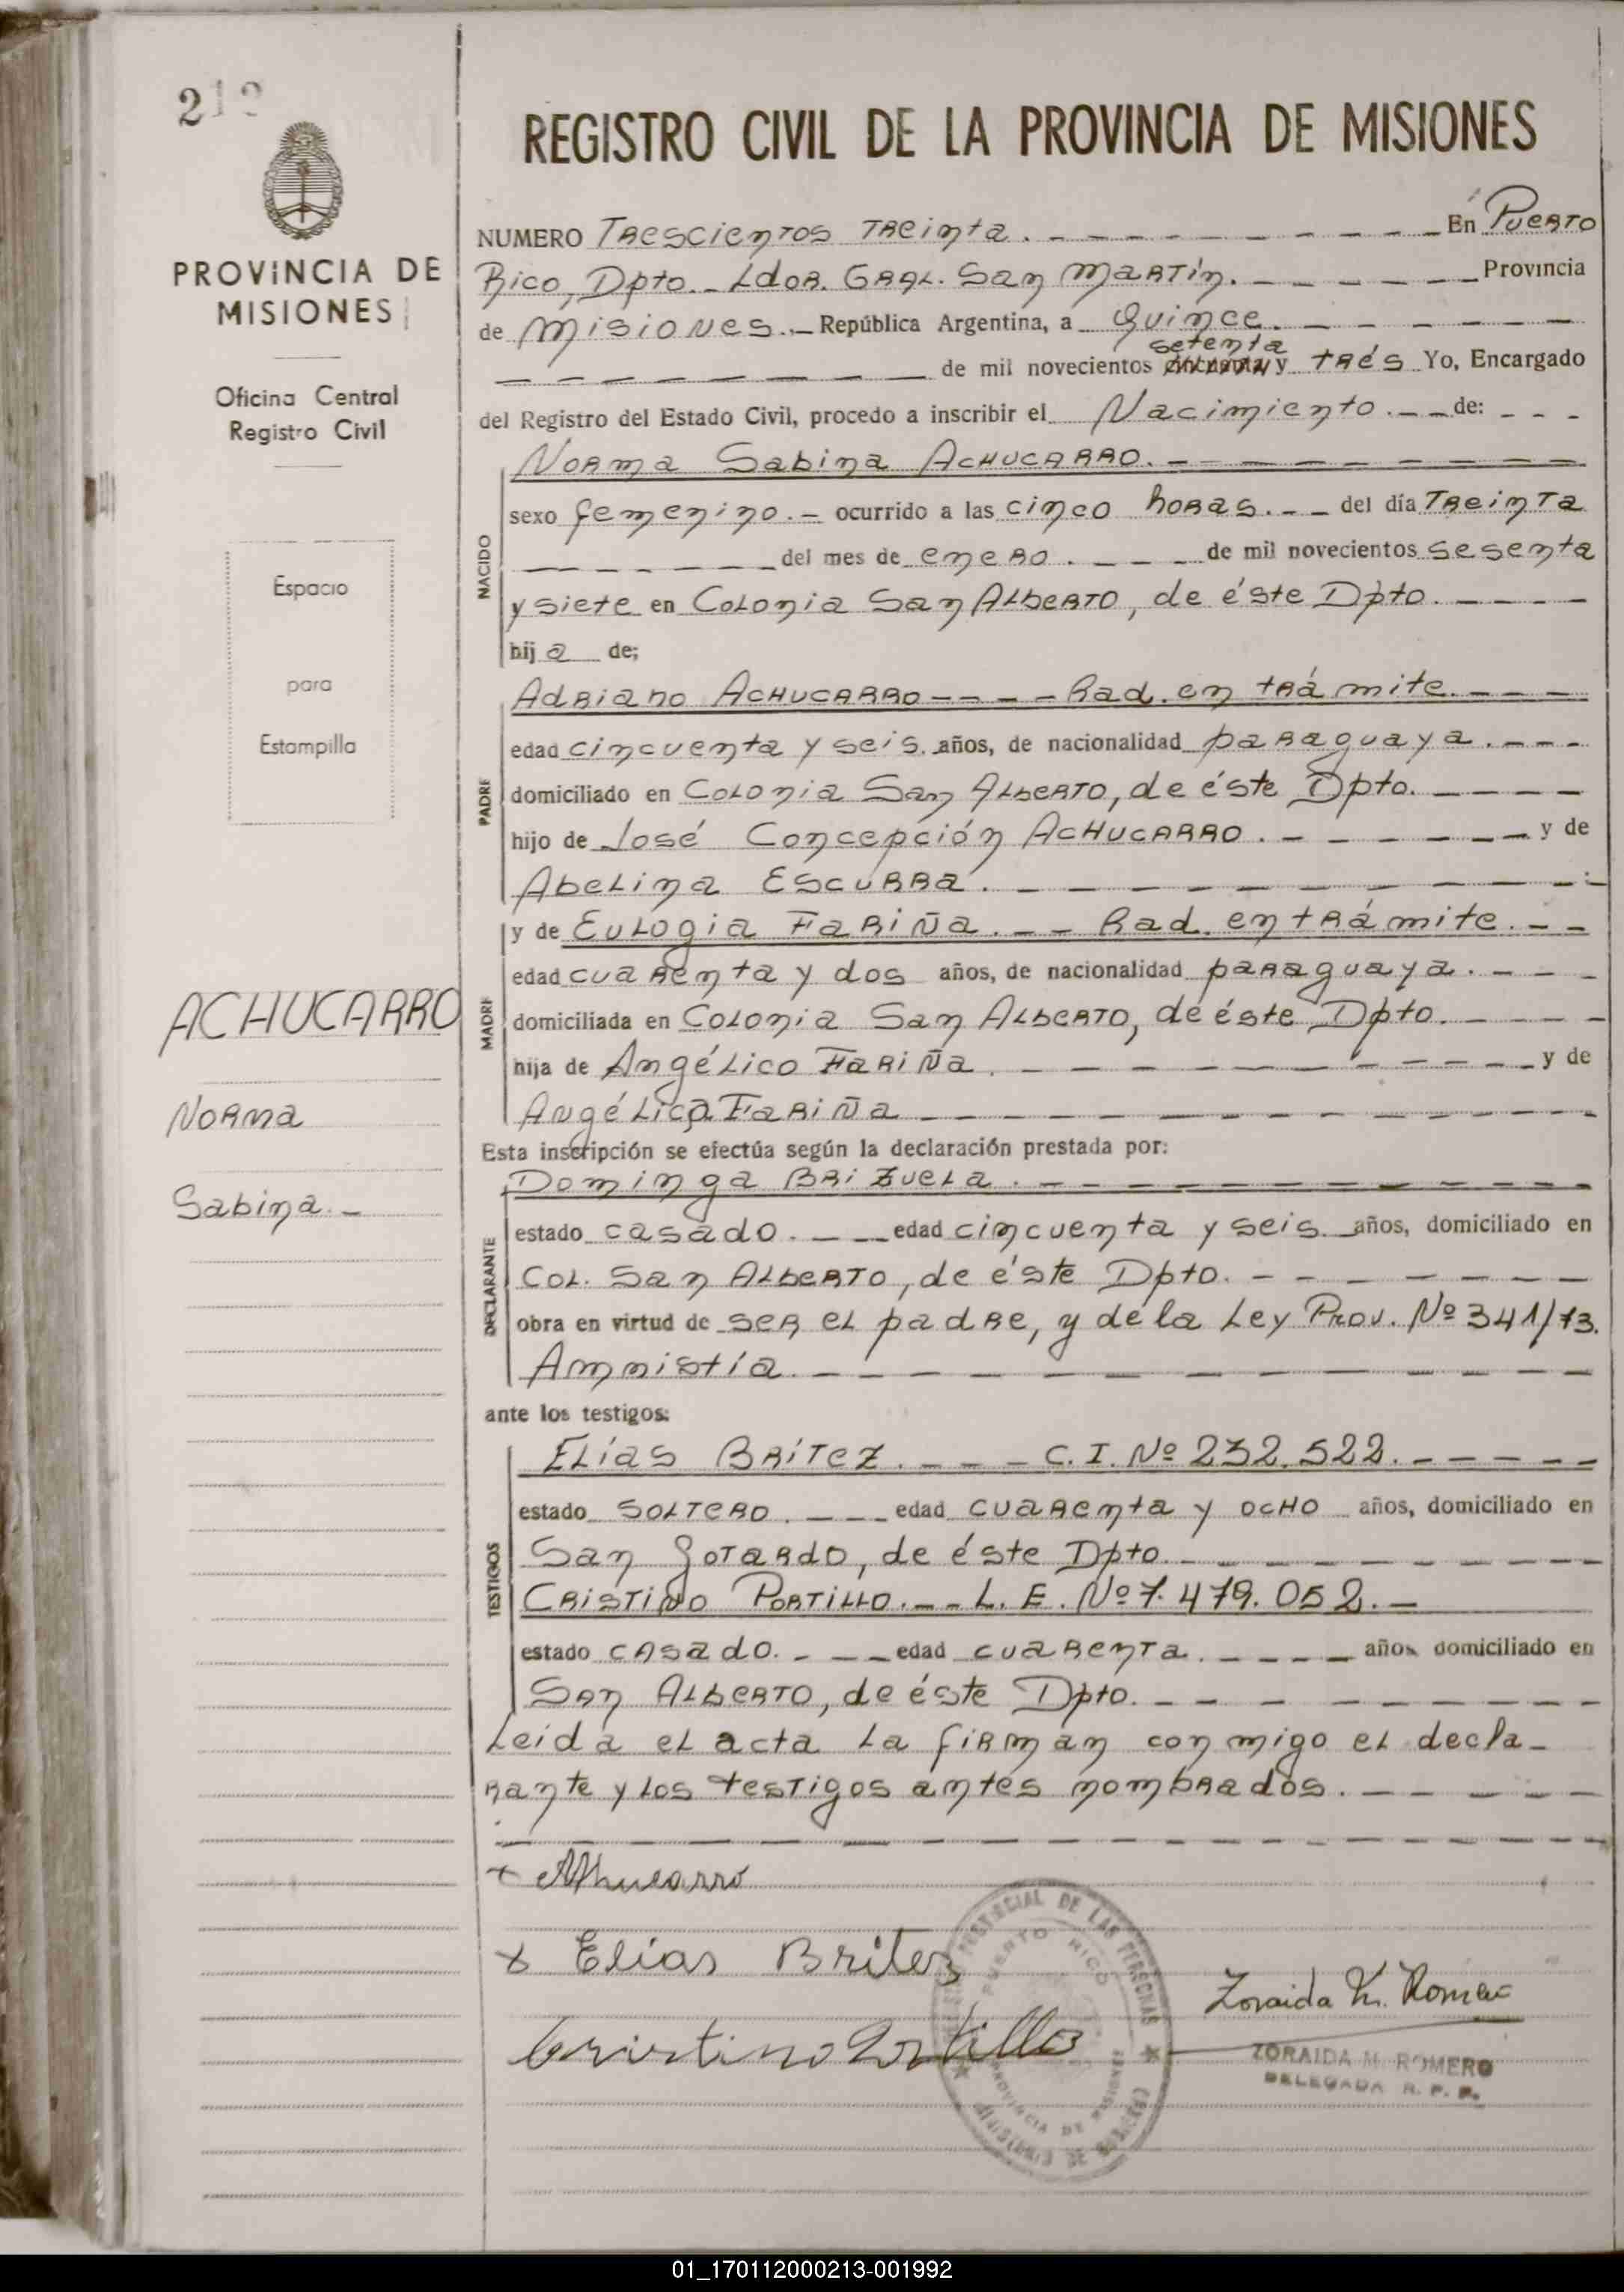 212
PROVINCIA DE
MISIONES
Oficina Central
Registro Civil
Espacio
para
Estampilla
ACHUCARRO
Norma
Sabina.-
REGISTRO CIVIL DE LA PROVINCIA DE MISIONES
NUMERO Trescientos Treinta. En Puerto
Rico, Dpto. Ldor. Gral. San Martín. Provincia
de Misiones.- República Argentina, a Quince.
setenta
de mil novecientos y trés Yo, Encargado
del Registro del Estado Civil, procedo a inscribir el Nacimiento. de:
Norma Sabina ACHUCARRO.
sexo femenino.- ocurrido a las cinco horas. del día Treinta
del mes de enero. de mil novecientos sesenta
y siete en Colonia San Alberto, de éste Dpto.
NACIDO
hij a de;
Adriano ACHUCARRO---- Rad. en trámite.
edad cincuenta y seis. años, de nacionalidad paraguaya.
domiciliado en Colonia San Alberto, de éste Dpto.
PADRE
hijo de José Concepción ACHUCARRO. y de
Abelina Escurra.
y de Eulogia Fariña. Rad. en trámite.
edad cuarenta y dos años, de nacionalidad paraguaya.
domiciliada en Colonia San Alberto, de éste Dpto.
MADRE
hija de Angélico Fariña. y de
Angélica Fariña
Esta inscripción se efectúa según la declaración prestada por:
Dominga Brizuela.
estado casado. edad cincuenta y seis. años, domiciliado en
Col. San Alberto, de éste Dpto.
DECLARANTE
obra en virtud de ser el padre, y de la Ley Prov. Nº 341/73.
Amnistía.
ante los testigos:
Elías Brítez. C.I. Nº 232.522.
estado soltero. edad cuarenta y ocho años, domiciliado en
San Gotardo, de éste Dpto.
TESTIGOS
Cristino Portillo. L.E. Nº 7.479.052.-
estado casado. edad cuarenta. años domiciliado en
San Alberto, de éste Dpto.
Leída el acta la firman conmigo el decla-
rante y los testigos antes nombrados.
x Achucarro
x Elías Britez
Cristino Portillo
Zoraida M. Romero
ZORAIDA M. ROMERO
DELEGADA R. P. P.
PROVINCIAL DE LAS PERSONAS
PUERTO RICO
PROVINCIA DE MISIONES
01_170112000213-001992